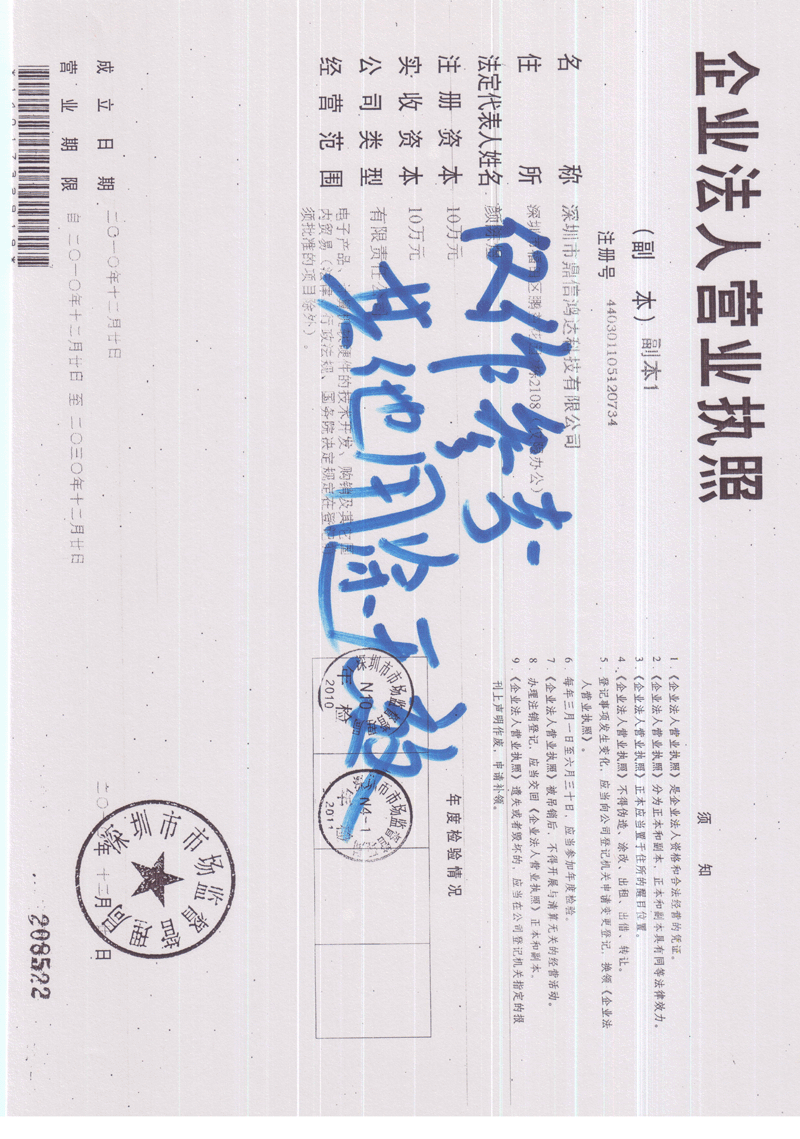 企业法人营业执照
(副 本) 副本1
注册号 440301105120734
名 称 深圳市鼎信鸿达科技有限公司
住 所 深圳市福田区
2108
办公)
法定代表人姓名 颜
注册资本 10万元
实收资本 10万元
公司类型 有限责任公
经营范围 电子产品、
硬件的技术开发、购销及其它国
内贸易(法律、行政法规、国务院决定规定在登记前
须批准的项目除外)。
成立日期 二〇一〇年十二月廿日
营业期限 自 二〇一〇年十二月廿日 至 二〇三〇年十二月廿日
仅作参考
其他用途无效
须 知
1.《企业法人营业执照》是企业法人资格和合法经营的凭证。
2.《企业法人营业执照》分为正本和副本,正本和副本具有同等法律效力。
3.《企业法人营业执照》正本应当置于住所的醒目位置。
4.《企业法人营业执照》不得伪造、涂改、出租、出借、转让。
5. 登记事项发生变化,应当向公司登记机关申请变更登记,换领《企业法
人营业执照》。
6. 每年三月一日至六月三十日,应当参加年度检验。
7.《企业法人营业执照》被吊销后,不得开展与清算无关的经营活动。
8. 办理注销登记,应当交回《企业法人营业执照》正本和副本。
9.《企业法人营业执照》遗失或者毁坏的,应当在公司登记机关指定的报
刊上声明作废,申请补领。
年度检验情况
深圳市市场监
N10
年检
2010
深圳市市场监
N4-1
年
2011
深圳市市场监督管理局
年 十二月 日
208522